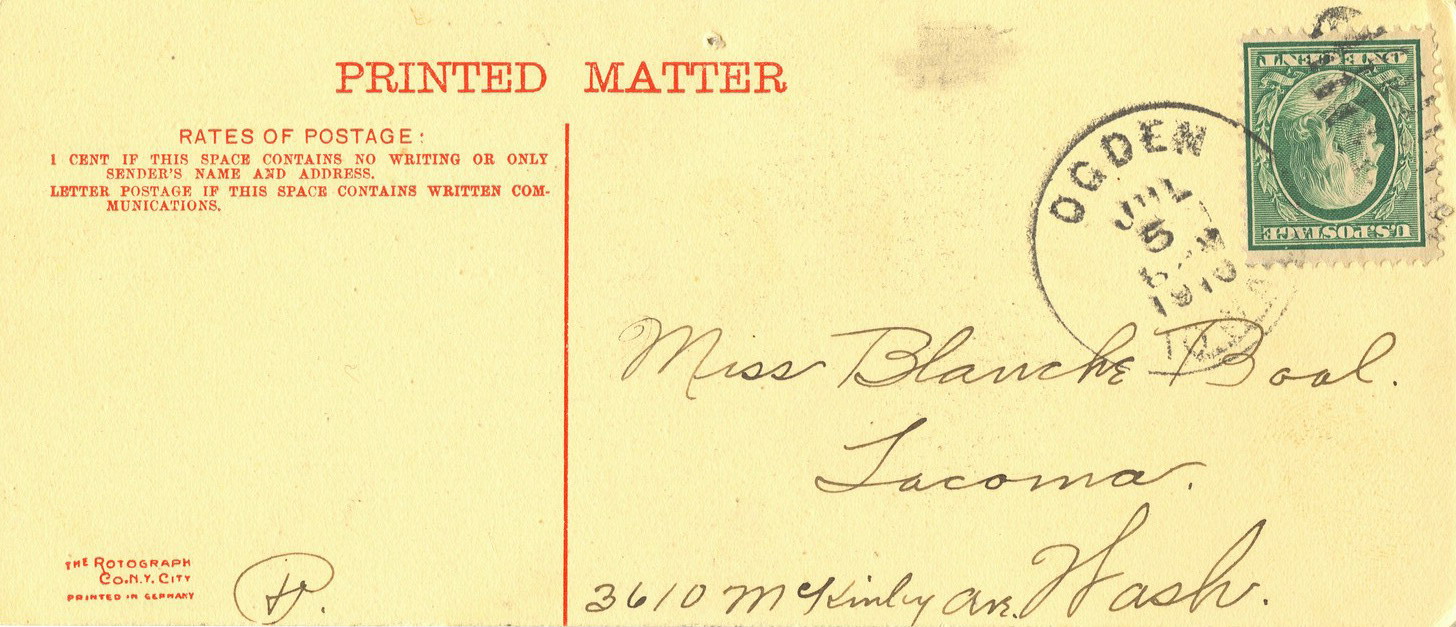 PRINTED MATTER
RATES OF POSTAGE:
1 CENT IF THIS SPACE CONTAINS NO WRITING OR ONLY
SENDER'S NAME AND ADDRESS.
LETTER POSTAGE IF THIS SPACE CONTAINS WRITTEN COM-
MUNICATIONS.
THE ROTOGRAPH
CO. N.Y. CITY
PRINTED IN GERMANY
P.
OGDEN
JUL
5
1910
U.S. POSTAGE
ONE CENT
Miss Blanche Boal.
Tacoma.
Wash.
3610 McKinley Ave.